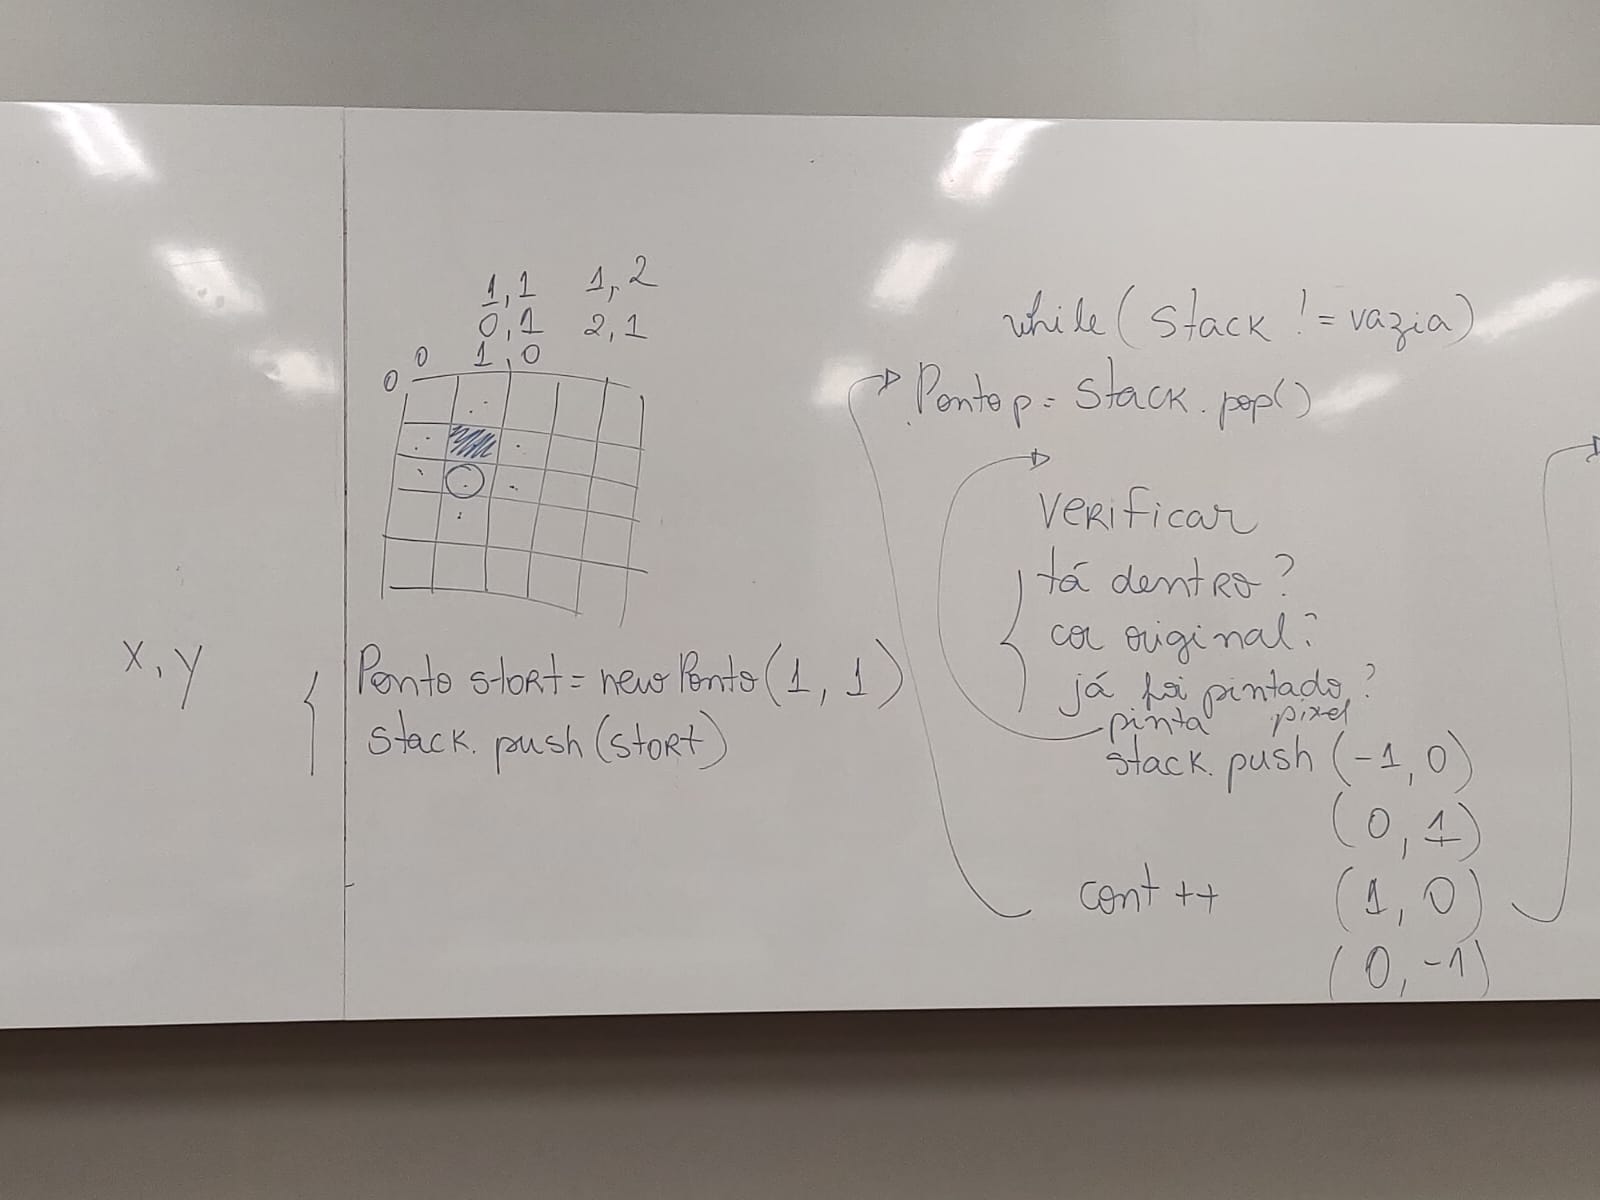 1,1 1,2
0,1 2,1
0 1,0
0
x, y
Ponto start = new Ponto(1, 1)
stack. push (start)
while ( stack != vazia)
Ponto p = stack. pop()
verificar
tá dentro?
cor original?
já foi pintado?
pinta pixel
stack. push (-1, 0)
(0, 1)
cont ++ (1, 0)
(0, -1)